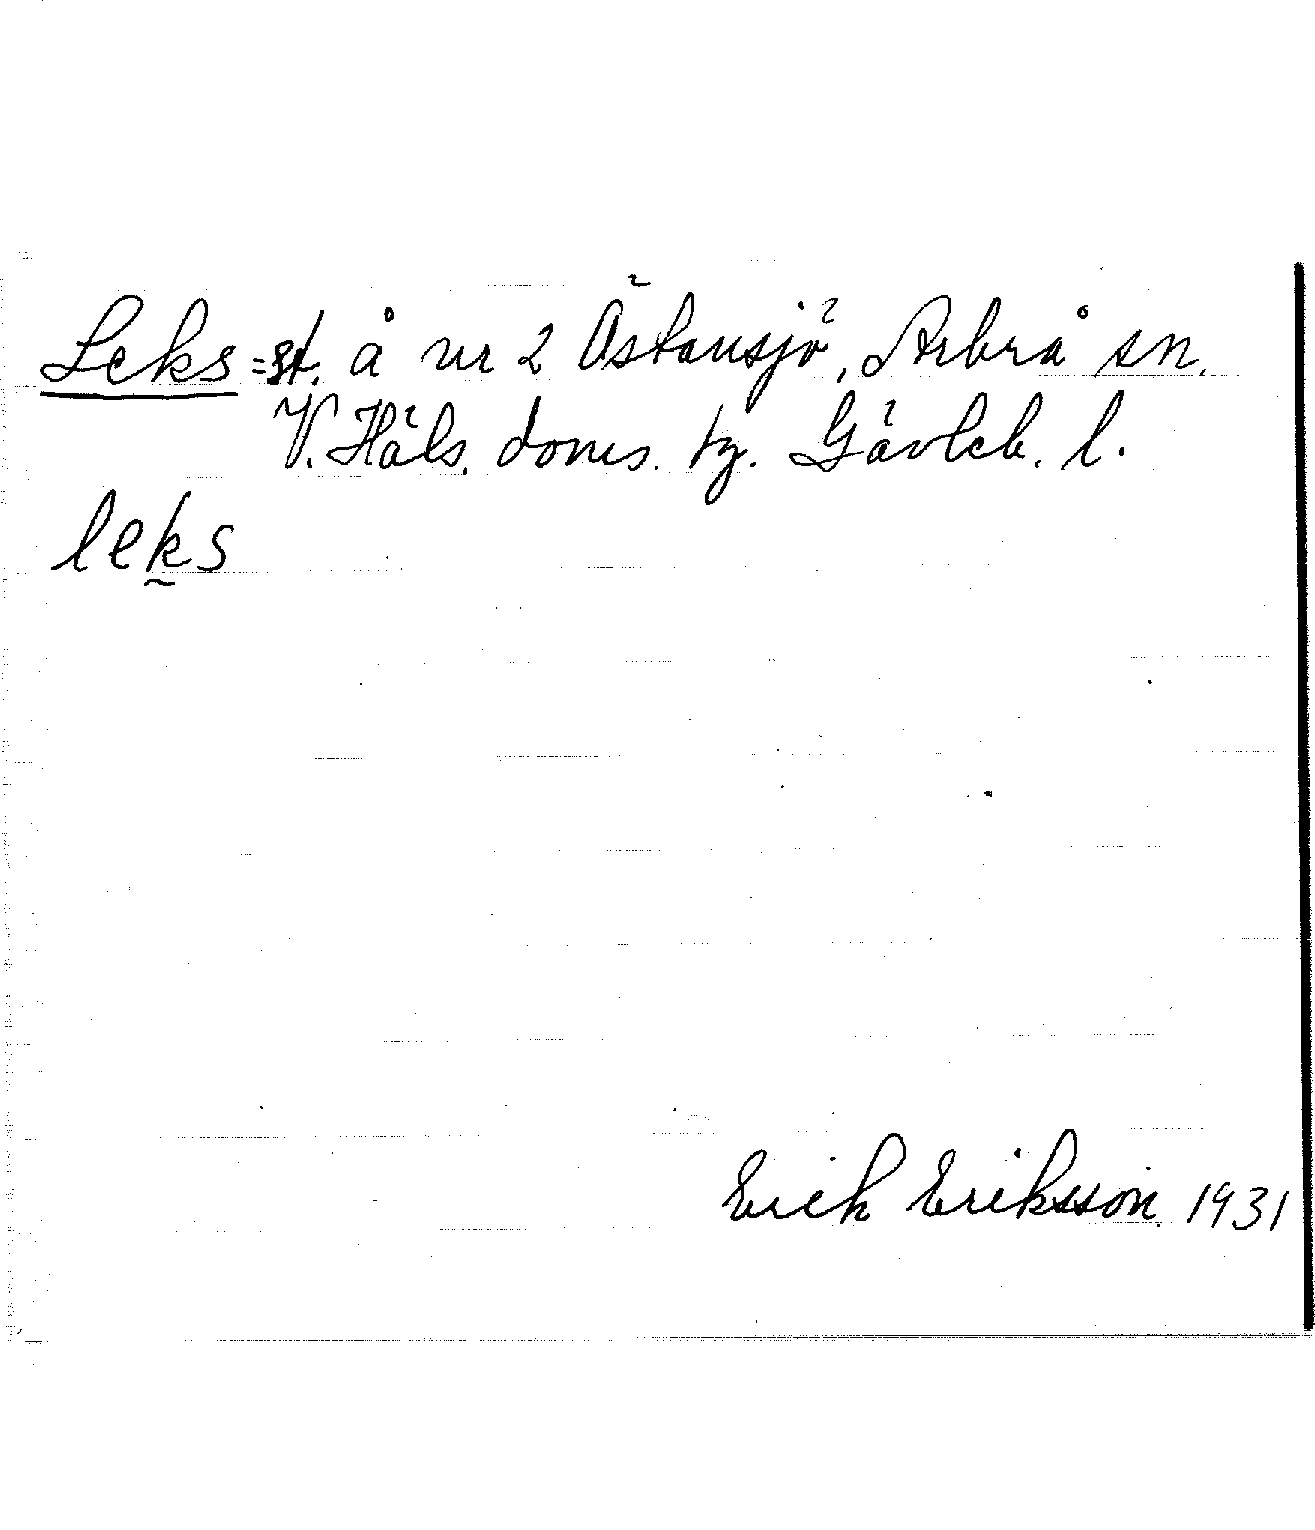 Leks =st. å nr 2 Östansjö, Arbrå sn.
V. Häls. doms. tg. Gävleb. l.
leks
Erick Eriksson. 1931